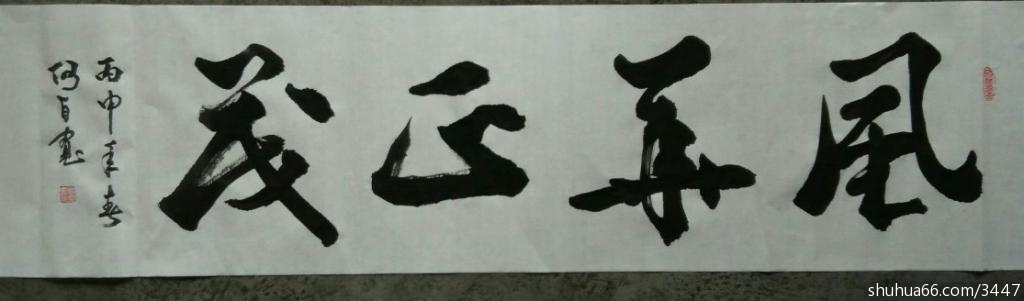 风华正茂
丙申年春
何自书
shuhua66.com/3447